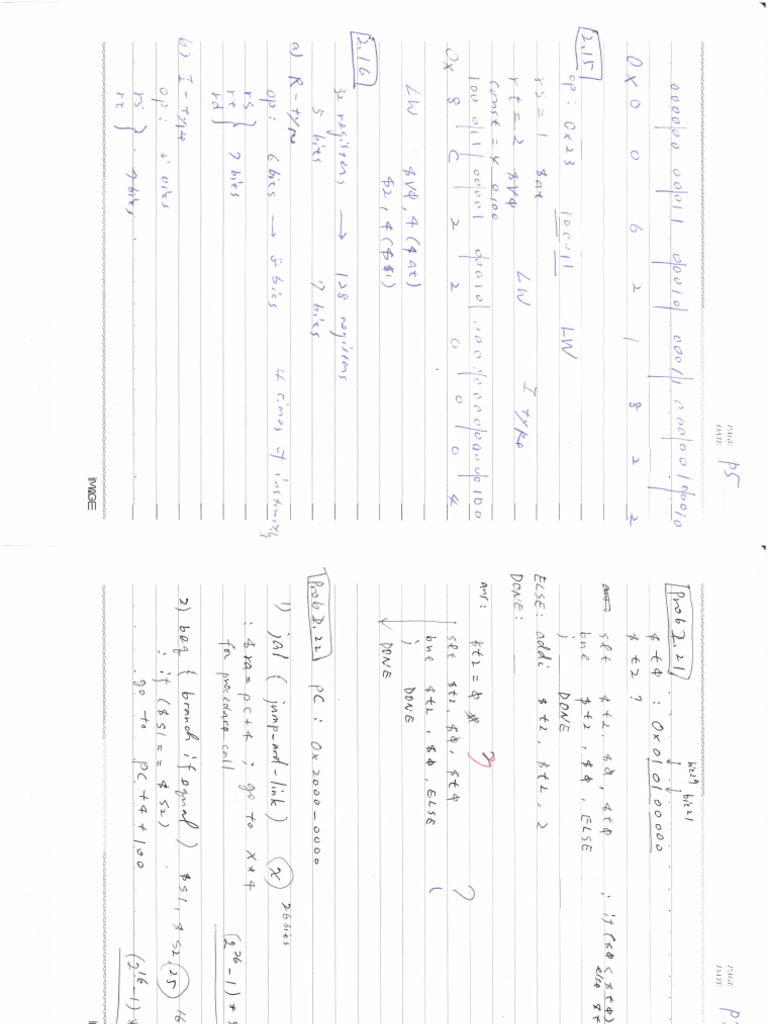 PAGE
DATE
P5
000000 00011 00010 00011 00000 100010
0x 0 0 6 2 1 8 2 2
2.15
op: 0x23 100011 LW
rs = 1 $at
rt = 2 $v0 LW I type
const = 4 0100
100011 00001 00010 0000000000000100
0x 8 C 2 2 0 0 0 4
LW $v0, 4($at)
$2, 4($1)
2.16
32 registers → 128 registers
5 bits 7 bits
a) R-type
op: 6 bits → 8 bits 4 times of
rs
rt } 7 bits
rd
b) I-type
op: 8 bits
rs
rt } 7 bits
IMAGE
PAGE
DATE
Prob 2.21
bit 29 bit 21
$t0 : 0x01010000
$t2 ?
slt $t2, $0, $t0 ; if ($0 < $t0)
else
bne $t2, $0, ELSE
j DONE
ELSE: addi $t2, $t2, 2
DONE:
ans: $t2 = 0 ?
slt $t2, $0, $t0
bne $t2, $0, ELSE
j DONE
DONE
Prob 2.22
PC : 0x2000-0000
1) jal (jump-and-link) x 26 bits
: $ra = PC+4 ; go to x*4
for procedure call (2^26 - 1) *
2) beq (branch if equal) $s1, $s2, 25 16
: if ($s1 == $s2)
go to PC+4+100 (2^16 - 1) *